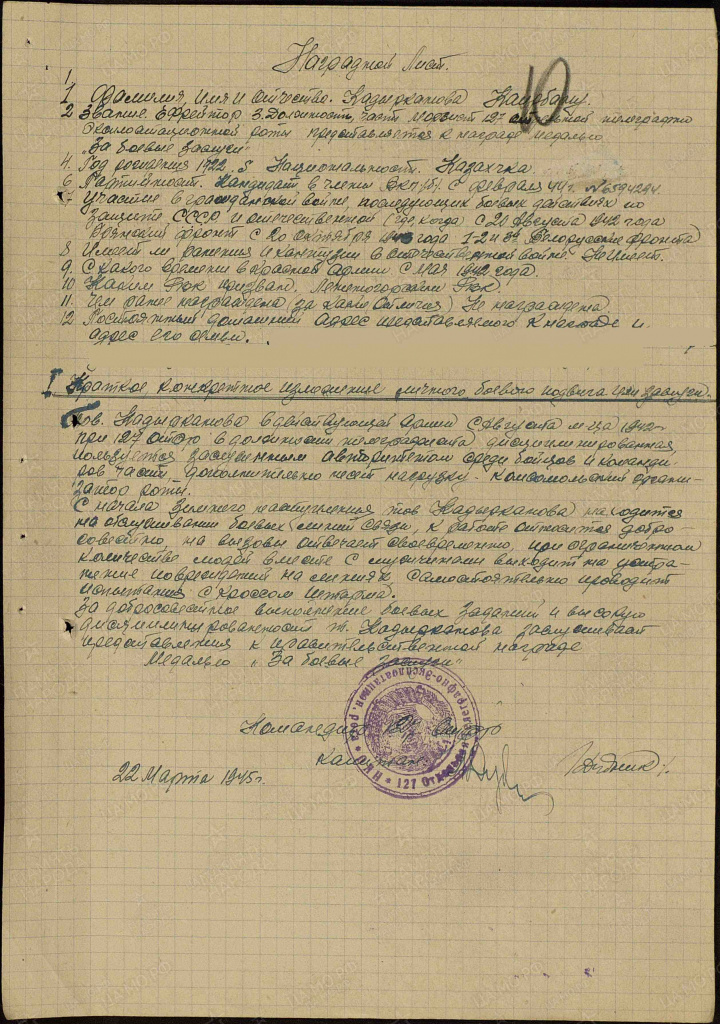 Наградной Лист.
10
1.
1 Фамилия, имя и отчество. Кадырканова
2 Звание. Ефрейтор 3. Должность, часть морзист 127 отдельной телеграфно
эксплоатационной роты представляется к награде медалью
„За боевые заслуги"
4. Год рождения 1922. 5 Национальность. Казахчка
6. Партийность. Кандидат в члены ВКП/б/ с февраля 44 г. № 6594294.
7. Участие в гражданской войне, последующих боевых действиях по
защите СССР и отечественной (где, когда) с 20 Августа 1942 года
фронт с 20 октября года 1-2 и Белорусские фронта
8 Имеет ли ранения и контузии в отечественной войне. Не имеет.
9. С какого времени в Красной армии с мая 1942 года.
10 Каким Рвк призван. Лениногорским Рвк.
11. Чем ранее награждена (за какие отличия) Не награждена
12. Постоянный домашний адрес представляемого к награде и
адрес его семьи.
I Краткое конкретное изложение личного боевого подвига или заслуги.
Тов. Кадырканова в действующей армии с Августа м-ца 1942
при 127 в должности телеграфиста, дисциплинированная,
пользуется заслуженным авторитетом среди бойцов и команди-
ров части, дополнительно несет нагрузку - комсомольский органи-
затор роты.
С начала зимнего наступления тов Кадырканова находится
на обслуживании боевых линий связи, к работе относится добро-
совестно, на вызовы отвечает своевременно, при ограниченном
количестве людей вместе с мужчинами выходит на устра-
нение повреждений на линиях, самостоятельно проводит
испытания с кроссом
За добросовестное выполнение боевых заданий и высокую
дисциплинированность т. Кадырканова заслуживает
представления к правительственной награде
Медалью „За боевые заслуги"
Командир 127
Капитан
22 Марта 1945 г.
НКО • 127 Отдельная телеграфно-эксплоатацион. рота